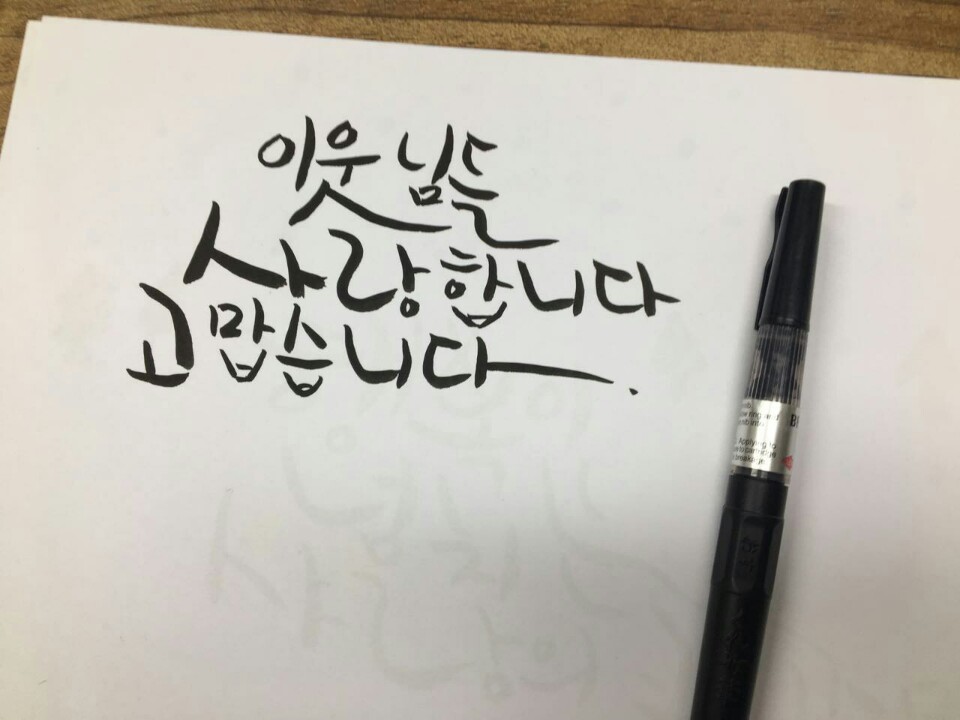 이웃님들
사랑합니다
고맙습니다.
Applying to